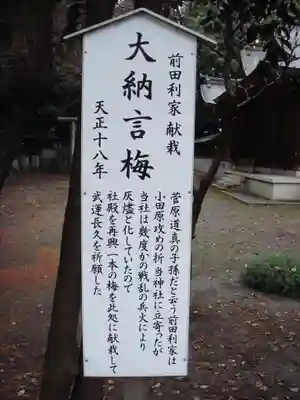 前田利家献栽
大納言梅
天正十八年
菅原道真の子孫だと云う前田利家は
小田原攻めの折当神社に立寄ったが
当社は幾度かの戦乱の兵火により
灰燼と化していたので
社殿を再興一本の梅を此処に献栽して
武運長久を祈願した